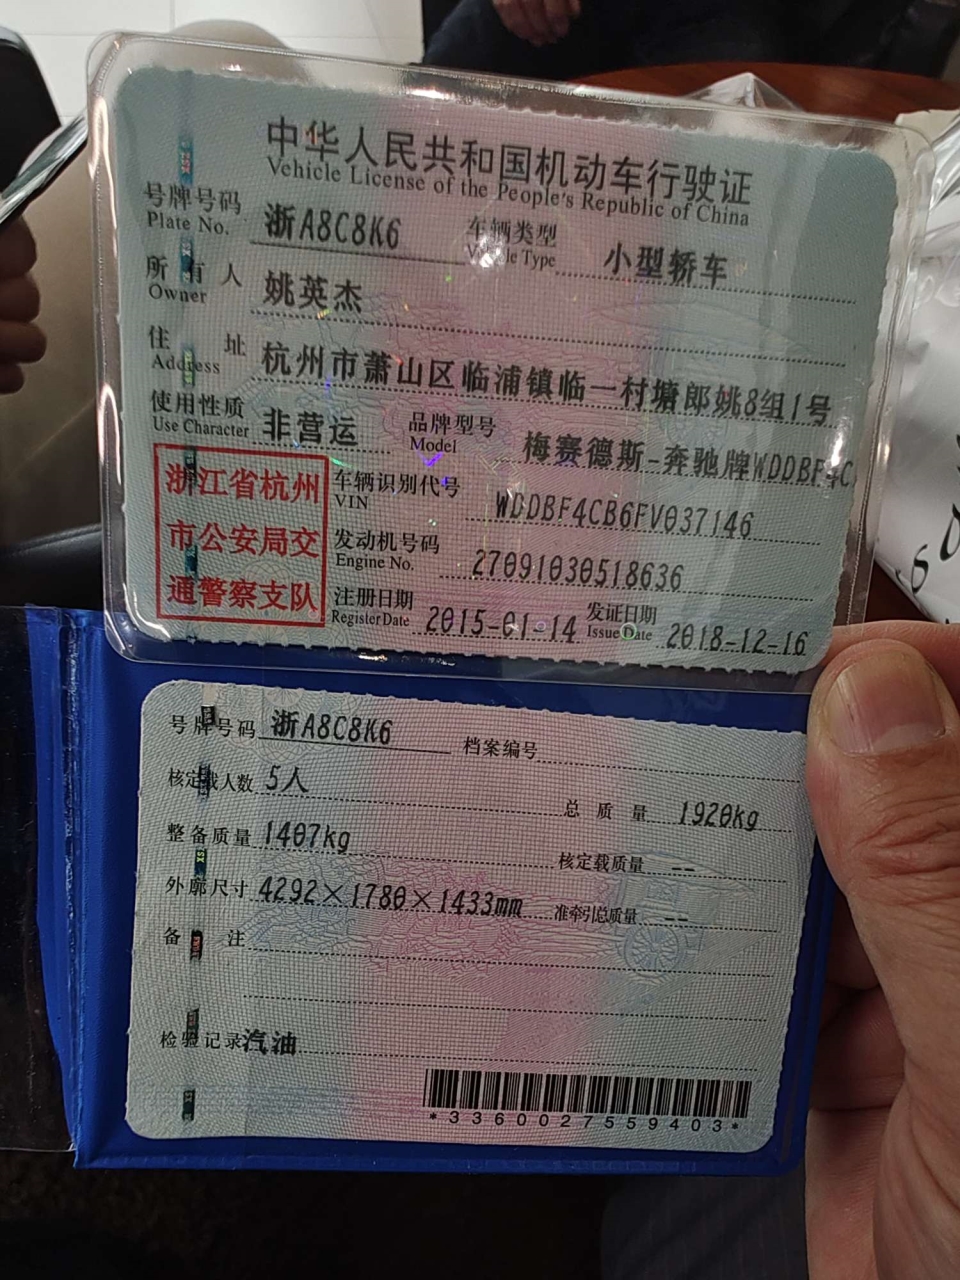 中华人民共和国机动车行驶证
Vehicle License of the People's Republic of China
号牌号码 浙A8C8K6 车辆类型 小型轿车
Plate No. Vehicle Type
所有人 姚英杰
Owner
住址 杭州市萧山区临浦镇临一村塘郎姚8组1号
Address
使用性质 非营运 品牌型号 梅赛德斯-奔驰牌WDDBF4C
Use Character Model
浙江省杭州
市公安局交
通警察支队
车辆识别代号 WDDBF4CB6FV037146
VIN
发动机号码 27091030518636
Engine No.
注册日期 2015-01-14 发证日期 2018-12-16
Register Date Issue Date
号牌号码 浙A8C8K6 档案编号
核定载人数 5人 总质量 1920kg
整备质量 1407kg 核定载质量 --
外廓尺寸 4292×1780×1433mm 准牵引总质量 --
备注
检验记录 汽油
*3360027559403*